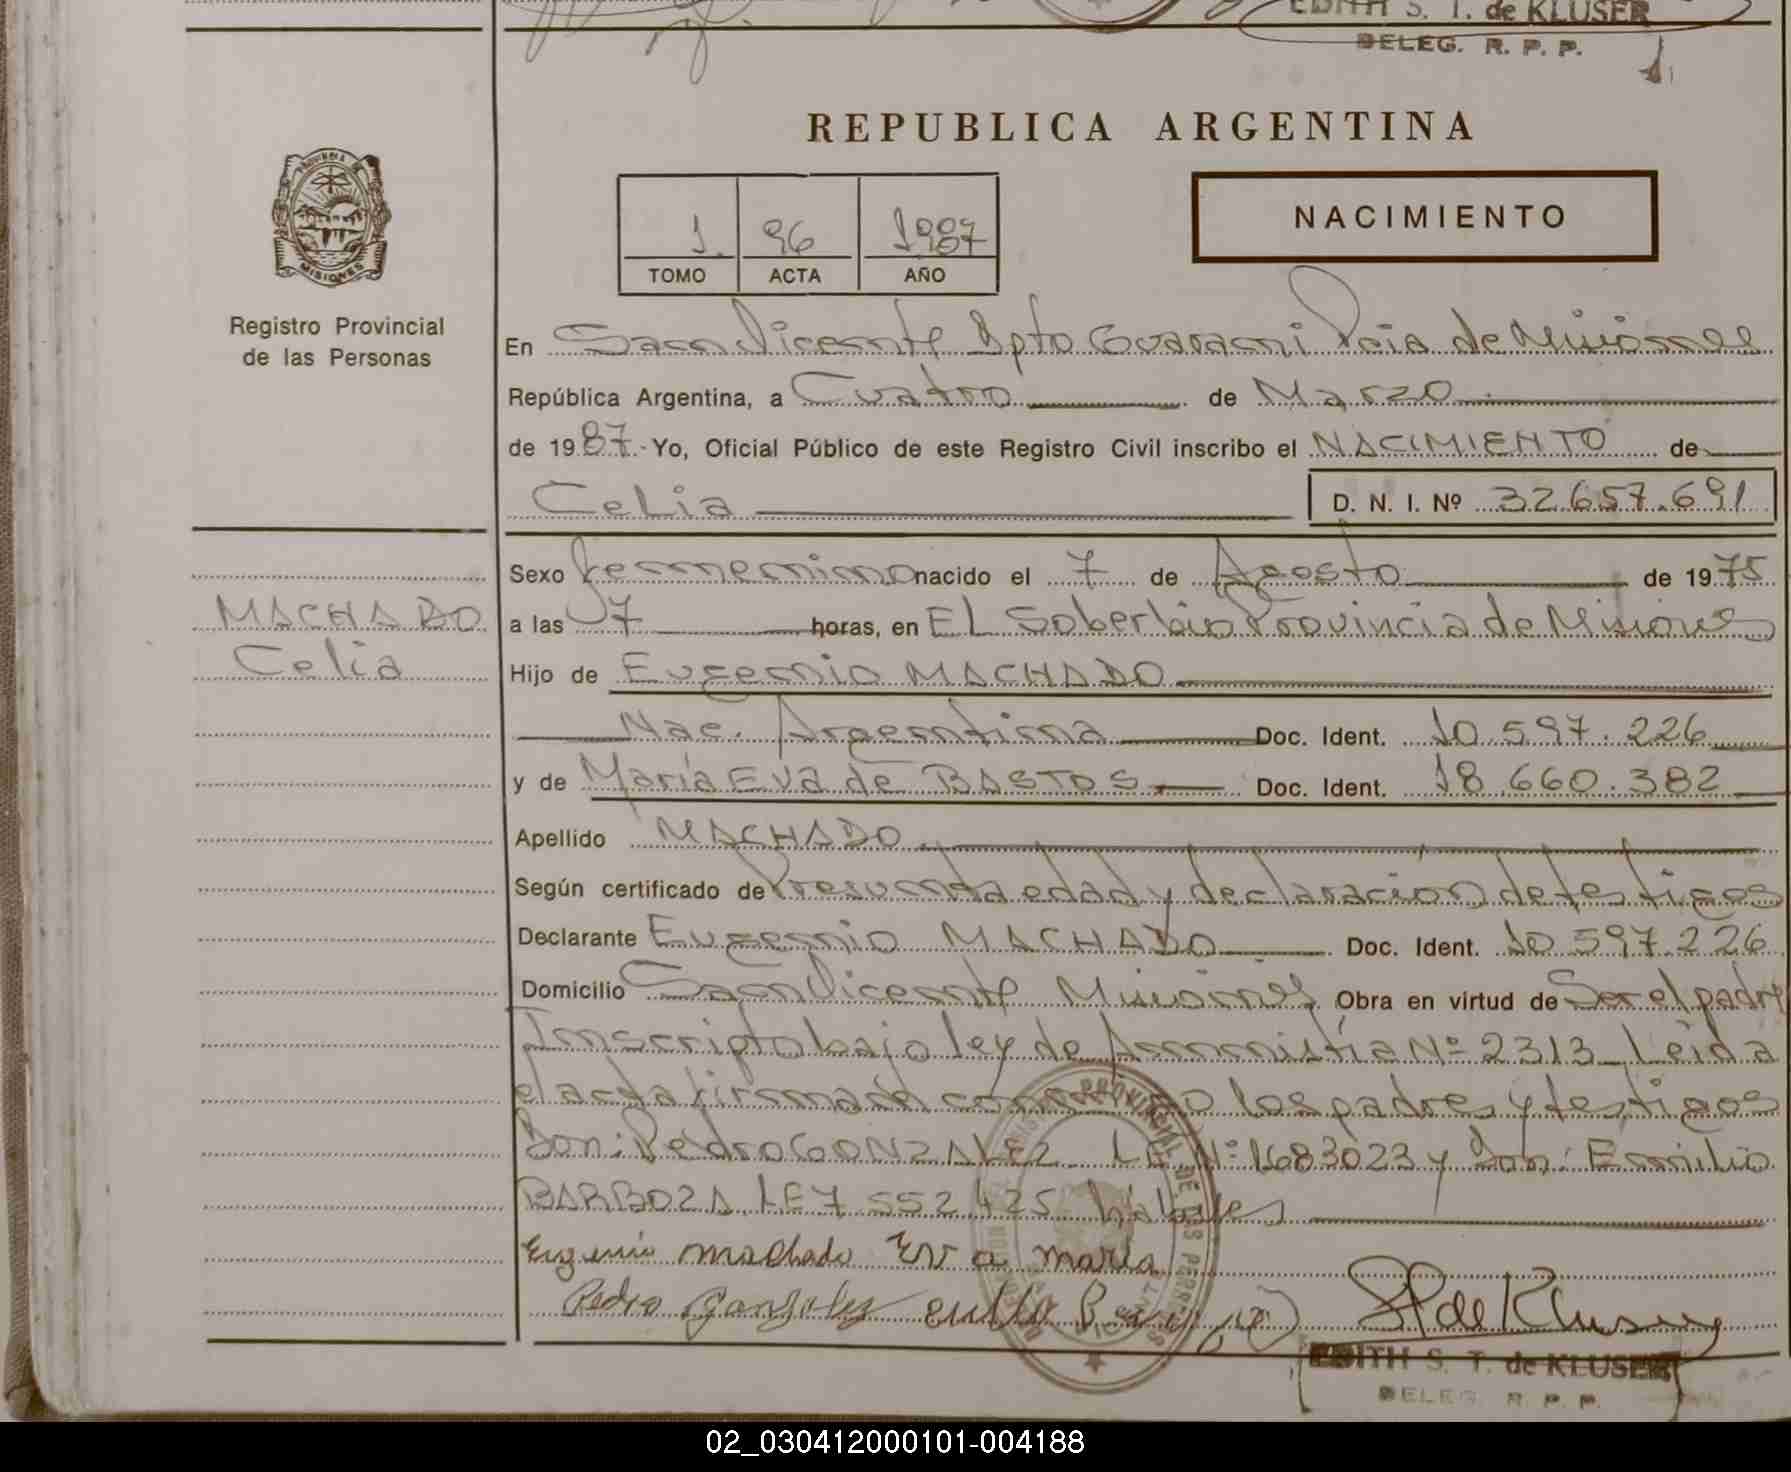 EDITH S. T. de KLUSER
DELEG. R. P. P.
REPUBLICA ARGENTINA
PROVINCIA DE
MISIONES
Registro Provincial
de las Personas
1. 96 1987
TOMO ACTA AÑO
NACIMIENTO
En San Vicente Dpto Guarani Pcia de Misiones
República Argentina, a Cuatro de Marzo
de 1987.- Yo, Oficial Público de este Registro Civil inscribo el NACIMIENTO de
Celia D. N. I. Nº 32.657.691
MACHADO
Celia
Sexo femenino nacido el 7 de Agosto de 1975
a las 7 horas, en EL Soberbio Provincia de Misiones
Hijo de Eugenio MACHADO
Nac. Argentina Doc. Ident. 10.597.226
y de María Eva de BASTOS Doc. Ident. 18.660.382
Apellido MACHADO
Según certificado de Presunta edad y declaración de testigos
Declarante Eugenio MACHADO Doc. Ident. 10.597.226
Domicilio San Vicente Misiones Obra en virtud de Ser el padre
Inscripto bajo ley de Amnistía Nº 2313 Leída
el acta firman conmigo los padres y testigos
Don: Pedro GONZALEZ LE Nº 1683023 y Don: Emilio
BARBOZA LE 7 552 425 hábiles
Eugenio machado Eva maria
Pedro Gonzalez
EDITH S. T. de KLUSER
DELEG R. P. P.
02_030412000101-004188